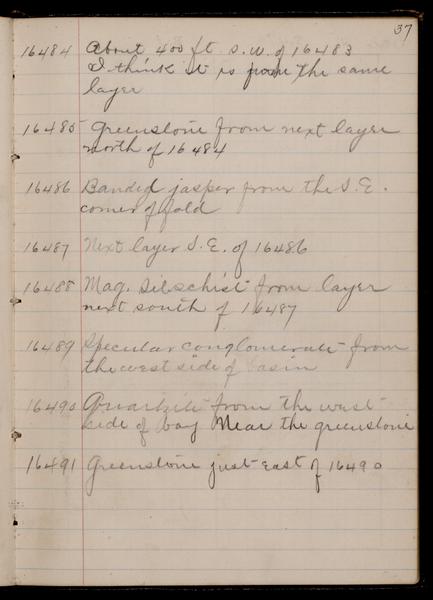 37
16484 About 400 ft S.W. of 16483
I think it is from the same
layer
16485 Greenstone from next layer
north of 16484
16486 Banded jasper from the S.E.
corner of fold
16487 Next layer S.E. of 16486
16488 Mag. from layer
next south of 16487
16489 Specular conglomerate from
the west side of basin
16490 Quartzite from the west
side of bay Near the greenstone
16491 Greenstone just east of 16490